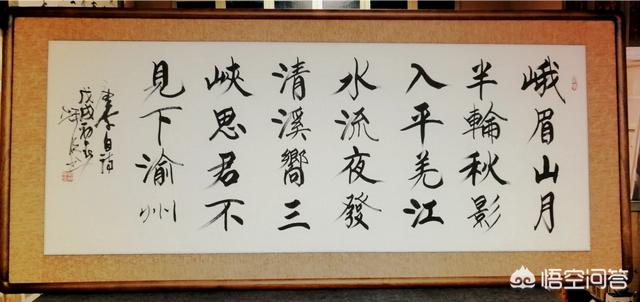 峨眉山月
半輪秋影
入平羌江
水流夜發
清溪嚮三
峽思君不
見下渝州
李白诗
戊戌初
悟空问答